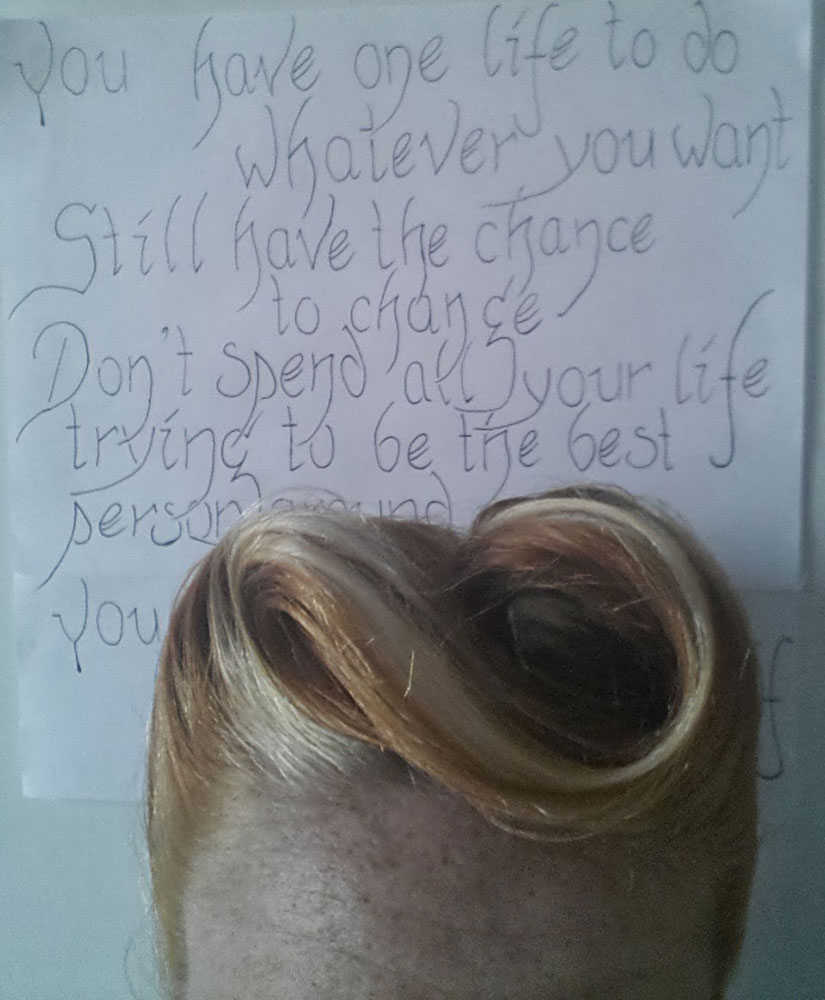 You have one life to do
whatever you want
Still have the chance
to change
Don't spend all your life
trying to be the best
person around
You